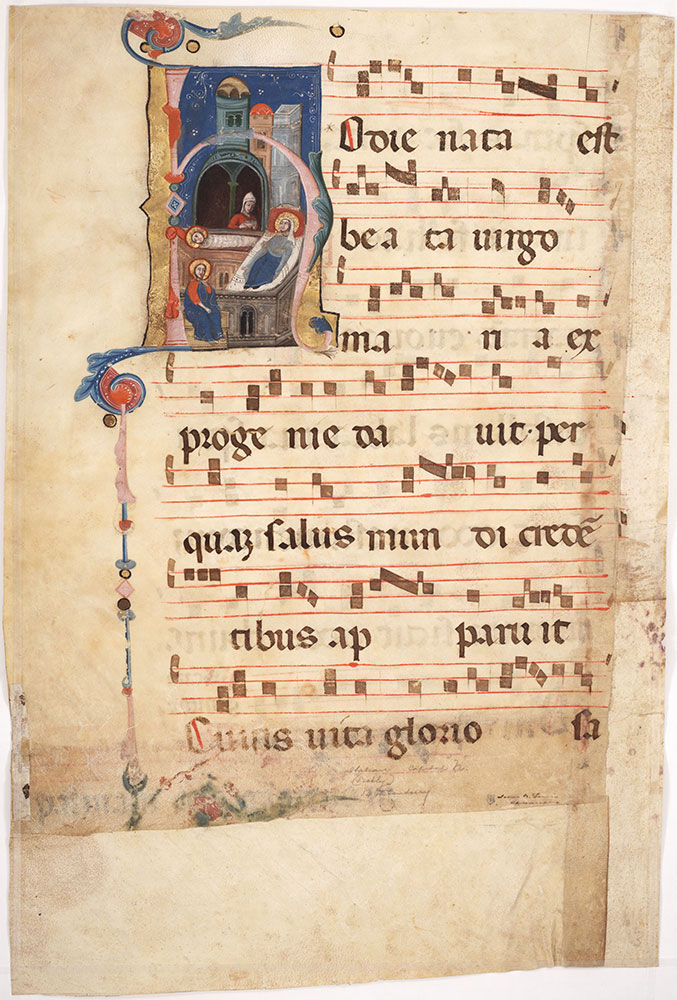 Odie nata est
beata uirgo
maria ex
progenie dauit·per
quaz salus mundi credē
tibus apparuit
Cuius uita gloriosa